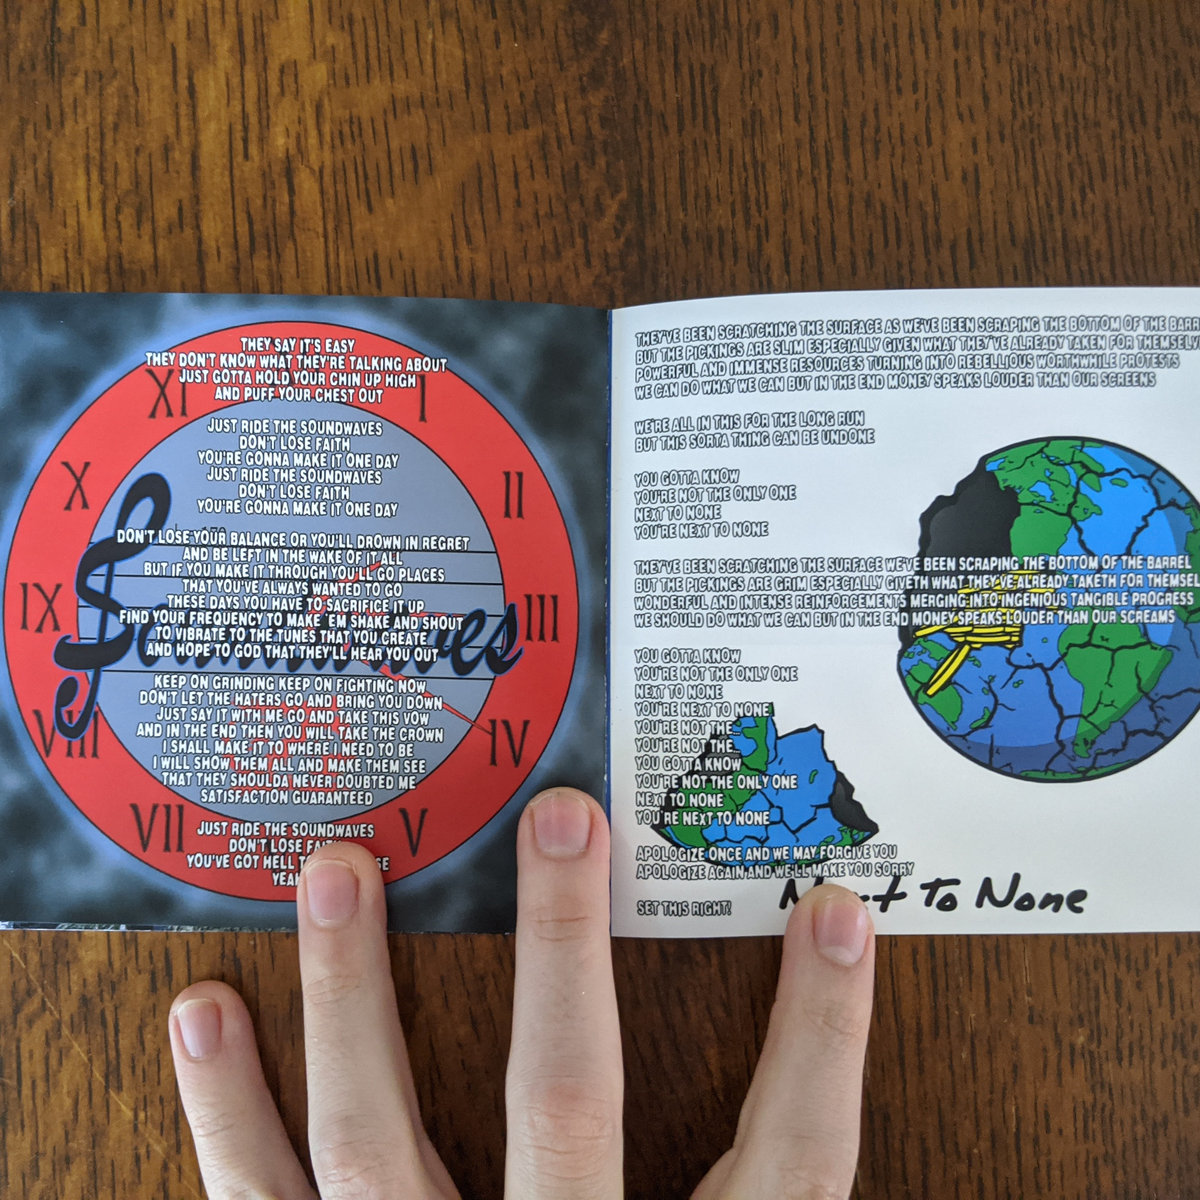 THEY SAY IT'S EASY
THEY DON'T KNOW WHAT THEY'RE TALKING ABOUT
JUST GOTTA HOLD YOUR CHIN UP HIGH
AND PUFF YOUR CHEST OUT
JUST RIDE THE SOUNDWAVES
DON'T LOSE FAITH
YOU'RE GONNA MAKE IT ONE DAY
JUST RIDE THE SOUNDWAVES
DON'T LOSE FAITH
YOU'RE GONNA MAKE IT ONE DAY
DON'T LOSE YOUR BALANCE OR YOU'LL DROWN IN REGRET
AND BE LEFT IN THE WAKE OF IT ALL
BUT IF YOU MAKE IT THROUGH YOU'LL GO PLACES
THAT YOU'VE ALWAYS WANTED TO GO
THESE DAYS YOU HAVE TO SACRIFICE IT UP
FIND YOUR FREQUENCY TO MAKE 'EM SHAKE AND SHOUT
TO VIBRATE TO THE TUNES THAT YOU CREATE
AND HOPE TO GOD THAT THEY'LL HEAR YOU OUT
KEEP ON GRINDING KEEP ON FIGHTING NOW
DON'T LET THE HATERS GO AND BRING YOU DOWN
JUST SAY IT WITH ME GO AND TAKE THIS VOW
AND IN THE END THEN YOU WILL TAKE THE CROWN
I SHALL MAKE IT TO WHERE I NEED TO BE
I WILL SHOW THEM ALL AND MAKE THEM SEE
THAT THEY SHOULDA NEVER DOUBTED ME
SATISFACTION GUARANTEED
JUST RIDE THE SOUNDWAVES
DON'T LOSE FAITH
YOU'VE GOT HELL
YEAH
XI
I
X
II
IX
III
VIII
IV
VII
V
Soundwaves
THEY'VE BEEN SCRATCHING THE SURFACE AS WE'VE BEEN SCRAPING THE BOTTOM OF THE BARRE
BUT THE PICKINGS ARE SLIM ESPECIALLY GIVEN WHAT THEY'VE ALREADY TAKEN FOR THEMSELV
POWERFUL AND IMMENSE RESOURCES TURNING INTO REBELLIOUS WORTHWHILE PROTESTS
WE CAN DO WHAT WE CAN BUT IN THE END MONEY SPEAKS LOUDER THAN OUR SCREENS
WE'RE ALL IN THIS FOR THE LONG RUN
BUT THIS SORTA THING CAN BE UNDONE
YOU GOTTA KNOW
YOU'RE NOT THE ONLY ONE
NEXT TO NONE
YOU'RE NEXT TO NONE
THEY'VE BEEN SCRATCHING THE SURFACE WE'VE BEEN SCRAPING THE BOTTOM OF THE BARREL
BUT THE PICKINGS ARE GRIM ESPECIALLY GIVETH WHAT THEY'VE ALREADY TAKETH FOR THEMSEL
WONDERFUL AND INTENSE REINFORCEMENTS MERGING INTO INGENIOUS TANGIBLE PROGRESS
WE SHOULD DO WHAT WE CAN BUT IN THE END MONEY SPEAKS LOUDER THAN OUR SCREAMS
YOU GOTTA KNOW
YOU'RE NOT THE ONLY ONE
NEXT TO NONE
YOU'RE NEXT TO NONE
YOU'RE NOT THE...
YOU'RE NOT THE...
YOU GOTTA KNOW
YOU'RE NOT THE ONLY ONE
NEXT TO NONE
YOU'RE NEXT TO NONE
APOLOGIZE ONCE AND WE MAY FORGIVE YOU
APOLOGIZE AGAIN AND WE'LL MAKE YOU SORRY
SET THIS RIGHT!
Next To None